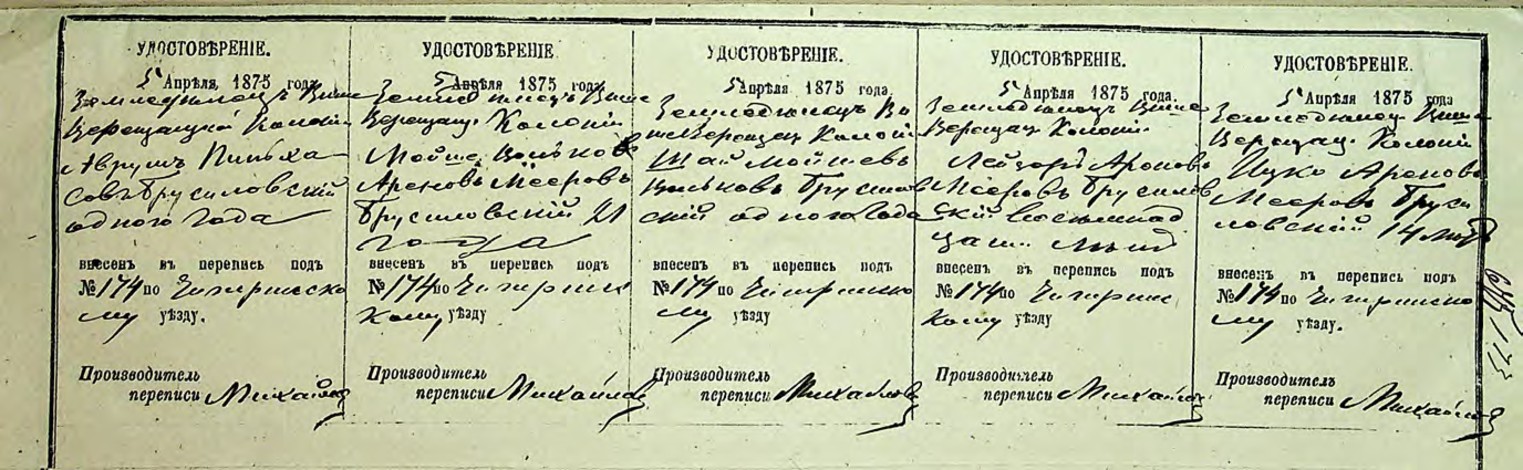 УДОСТОВѢРЕНІЕ.
5 Апрѣля 1875 года
Землед
Верещацкой Колоніи
Аврумъ Пиньха
совъ Брусиловскій
одного года
внесенъ въ перепись подъ
№ 174 по Чигиринско
му уѣзду.
Производитель
переписи Михайловъ
УДОСТОВѢРЕНІЕ
5 Апрѣля 1875 года
Верещац. Колоніи
Мойше Воньковъ
Ароновъ Мееровъ
Брусиловскій 21
года
внесенъ въ перепись подъ
№ 174 по Чигиринс
кому уѣзду
Производитель
переписи Михайловъ
УДОСТОВѢРЕНІЕ.
5 Апрѣля 1875 года.
Верещац Колоніи
Шая Мойшевъ
Воньковъ Брусилов
скій одного года
внесенъ въ перепись подъ
№ 174 по Чигиринско
му уѣзду
Производитель
переписи Михайловъ
УДОСТОВѢРЕНІЕ.
5 Апрѣля 1875 года.
Верещац Колоніи
Лейзоръ Ароновъ
Мееровъ Брусилов
скій восемнад
цати лѣтъ
внесенъ въ перепись подъ
№ 174 по Чигиринс
кому уѣзду
Производитель
переписи Михайловъ
УДОСТОВѢРЕНІЕ.
5 Апрѣля 1875 года
Верещац. Колоніи
Ицко Ароновъ
Мееровъ Бруси
ловскій 14 лѣтъ
внесенъ въ перепись подъ
№ 174 по Чигиринско
му уѣзду.
Производитель
переписи Михайловъ